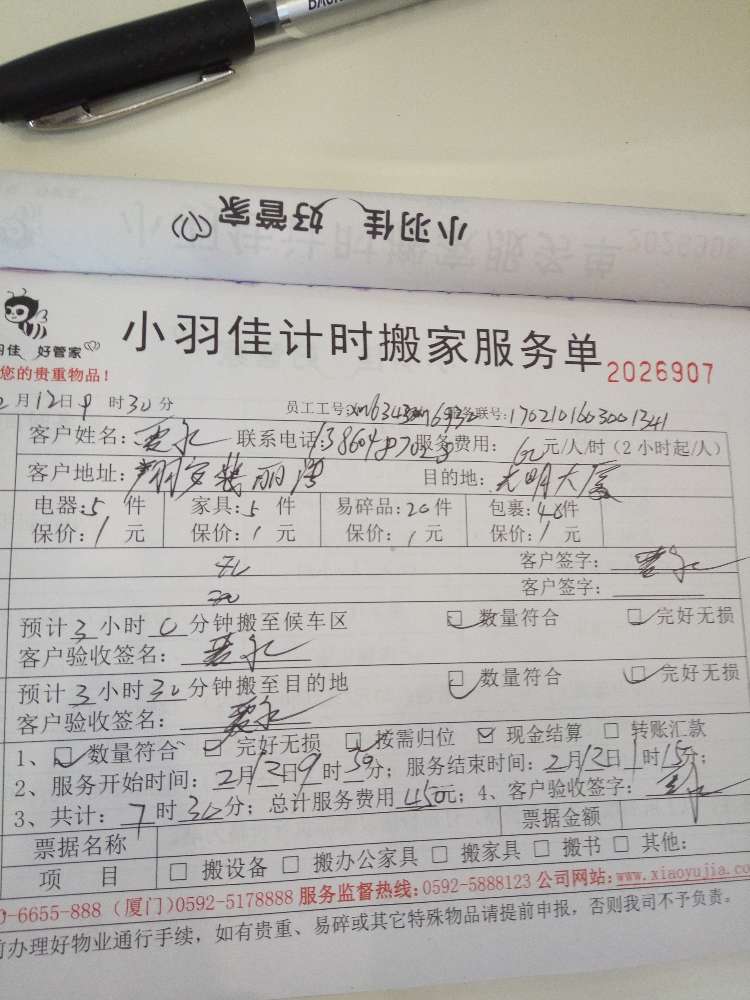 BAOK
小羽佳 好管家
小羽佳计时搬家服务单
2026907
羽佳 好管家
您的贵重物品！
2月12日9时30分 员工工号: 服务联号:1702101603001341
客户姓名: 联系电话: 服务费用:60元/人/时（2小时起/人）
客户地址: 目的地:光明大厦
电器:5件 家具:5件 易碎品:20件 包裹:48件
保价:1元 保价:1元 保价:1元 保价:1元
无 客户签字:
客户签字:
预计3小时0分钟搬至候车区 数量符合 完好无损
客户验收签名:
预计3小时30分钟搬至目的地 数量符合 完好无损
客户验收签名:
1、数量符合 完好无损 按需归位 现金结算 转账汇款
2、服务开始时间:2月12日9时50分；服务结束时间:2月12日1时15分；
3、共计:7时30分；总计服务费用450元；4、客户验收签字:
票据名称 票据金额
项 目 搬设备 搬办公家具 搬家具 搬书 其他:
0-6655-888（厦门）0592-5178888 服务监督热线:0592-5888123 公司网站:www.xiaoyujia.com
前办理好物业通行手续，如有贵重、易碎或其它特殊物品请提前申报，否则我司不予负责。